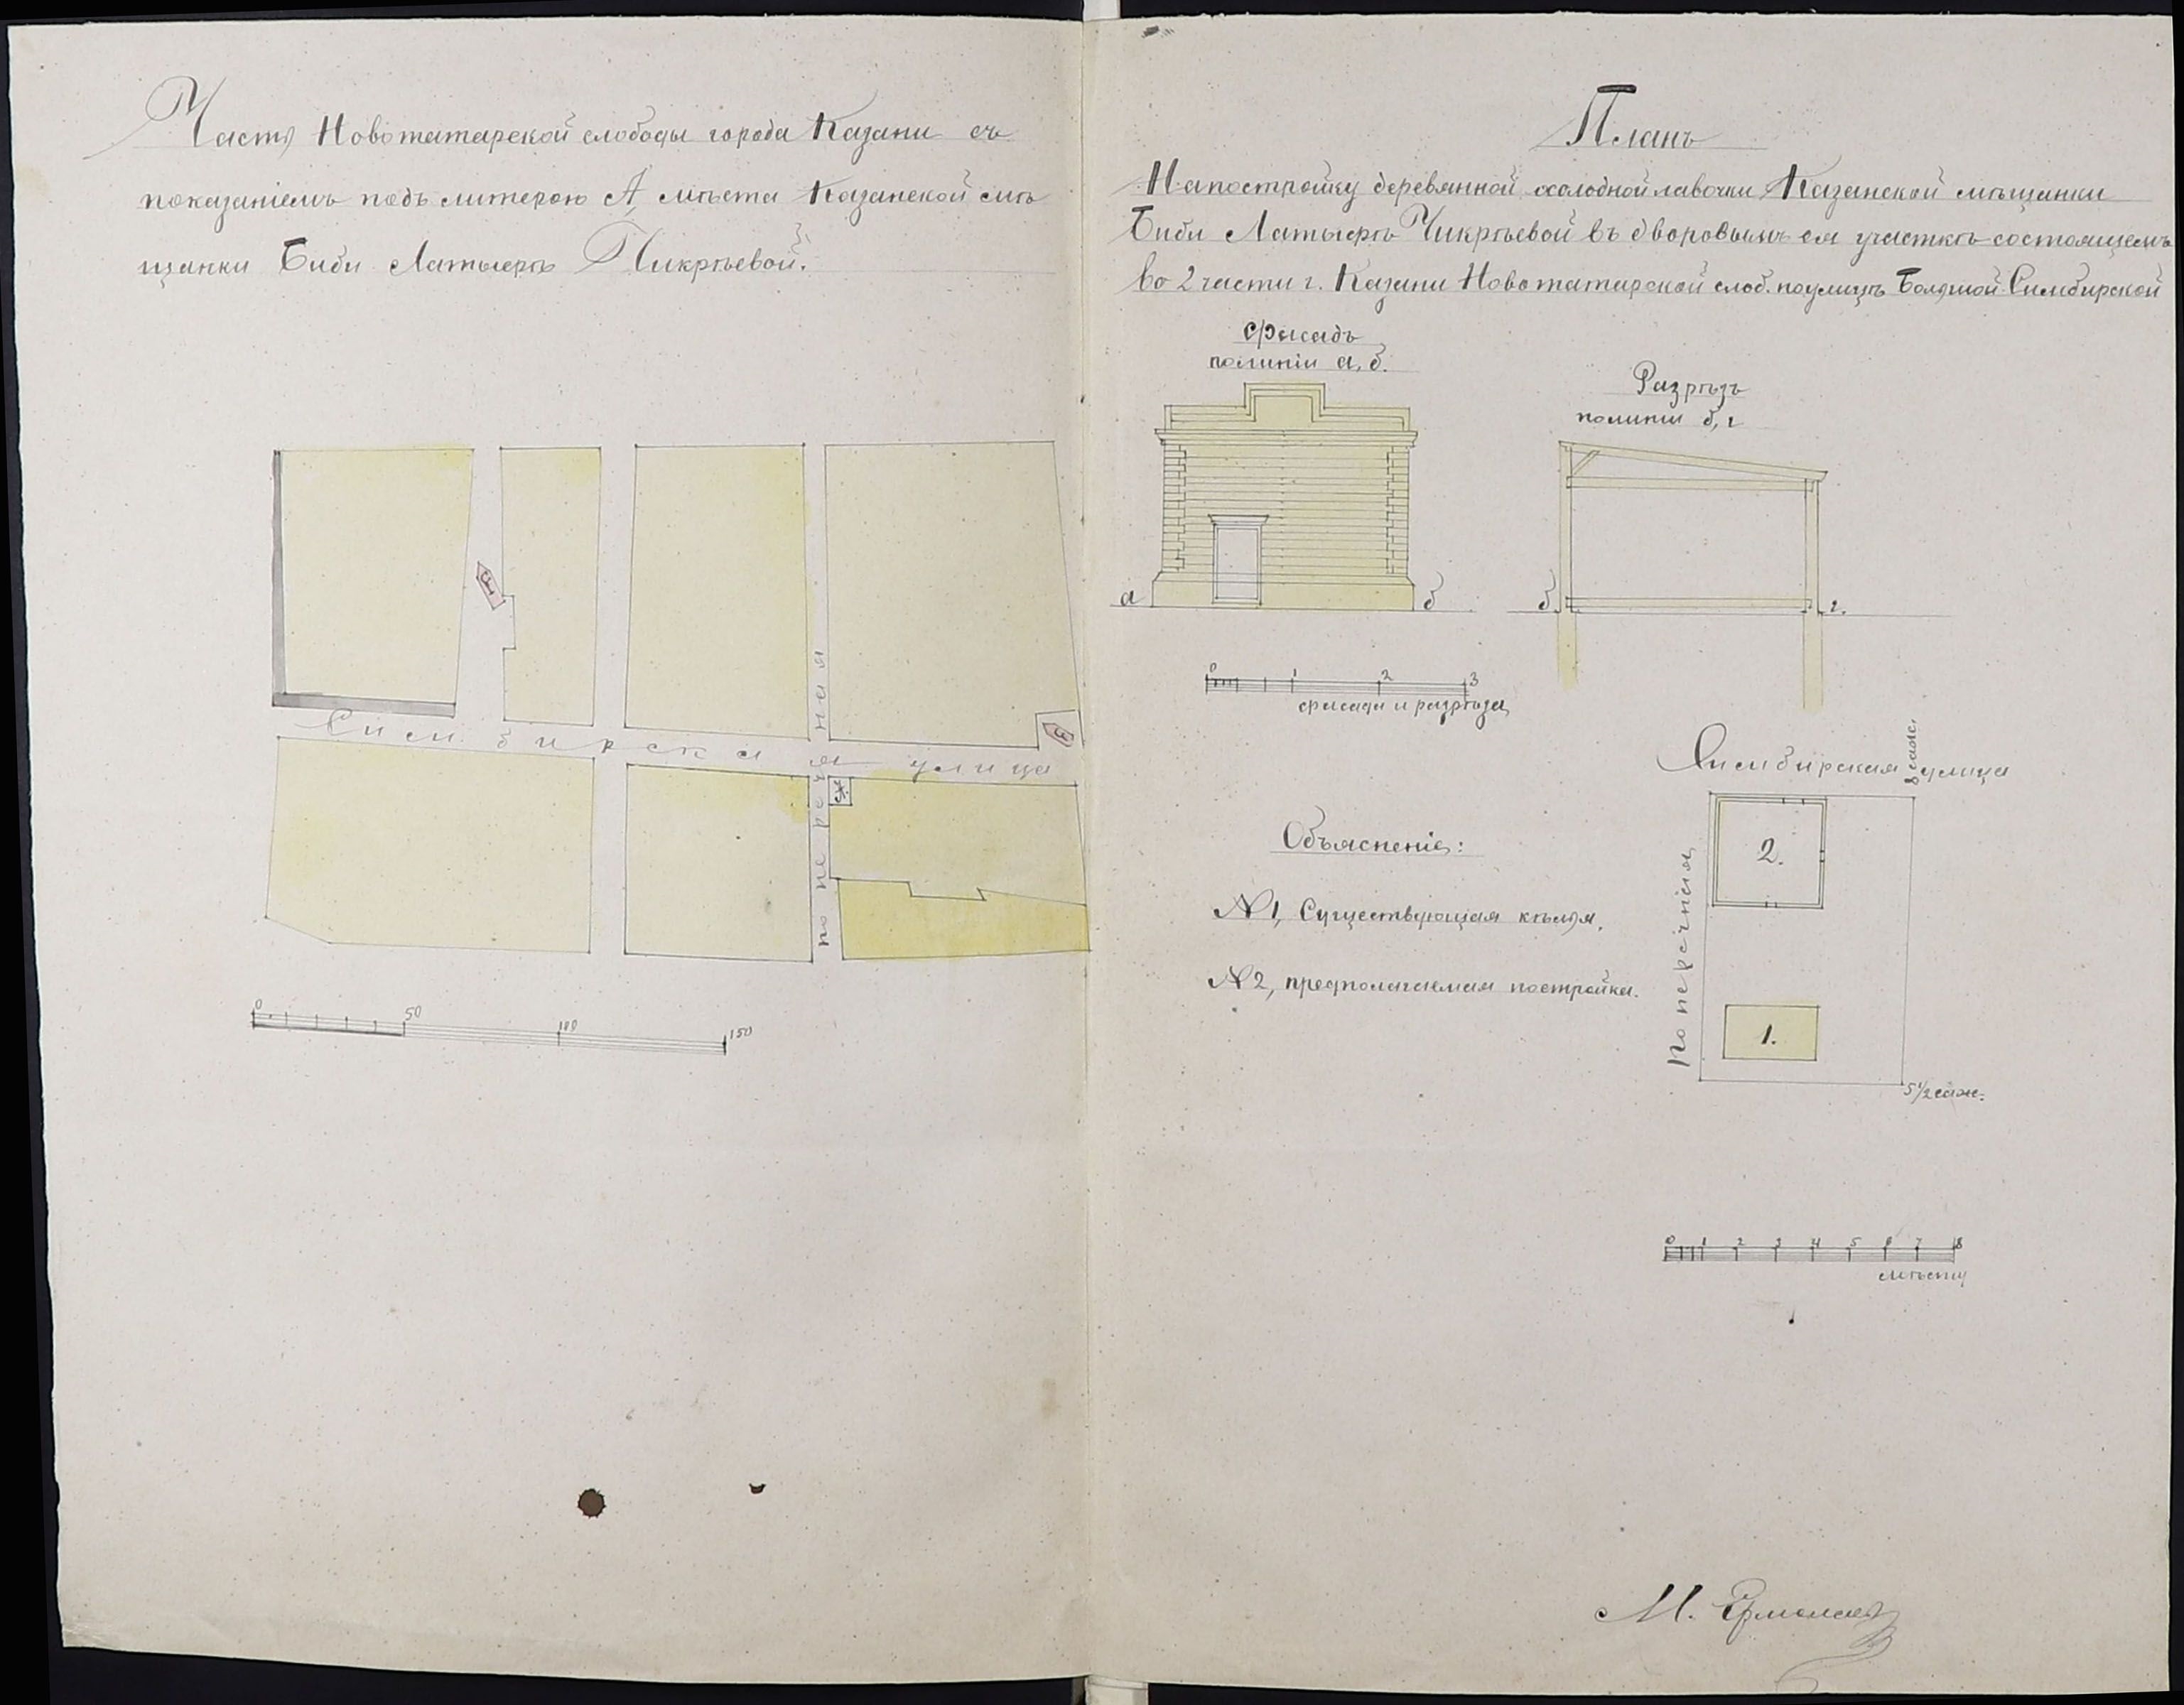 Часть Новотатарской слободы города Казани съ
показанiемъ подъ литерою А, мѣста Казанской мѣ
щанки Биби Латыерѣ Чикрѣевой.
Симбирская улица
поперечная
А
0 50 100 150
Планъ
На постройку деревянной холодной лавочки Казанской мѣщанки
Биби Латыерѣ Чикрѣевой въ дворовымъ ея участкѣ состоящемъ
во 2 части г. Казани Новотатарской слоб. по улицѣ Большой Симбирской
Фасадъ
по линiи а, б.
Разрѣзъ
по линiи б, г
а б
б г.
0 1 2 3
фасада и разрѣза
Симбирская улица
8 саж.
Объясненiе:
N 1, Существующая кѣлья.
N 2, предполагаемая постройка.
поперечная
2.
1.
5 1/2 саж.
0 1 2 3 4 5 6 7 8
мѣсту
М. Ермолаевъ